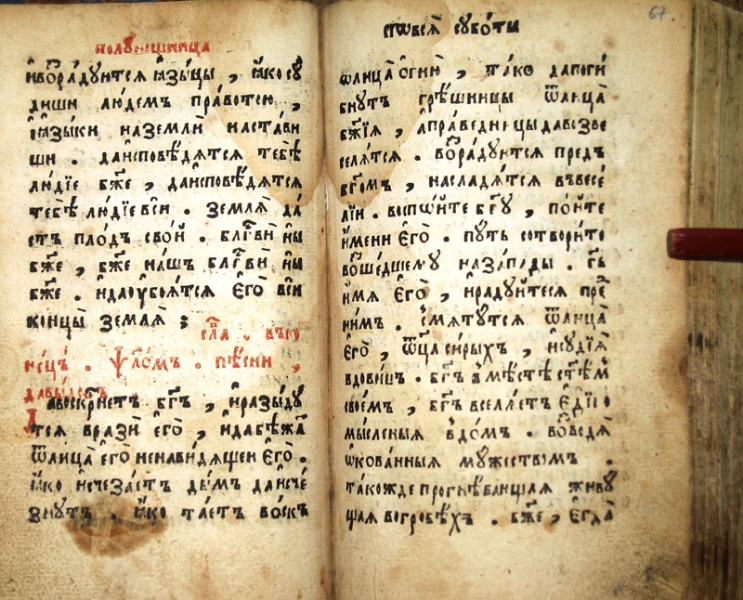 полу́нощница
и҆возра́дуются ꙗ҆зы́цы , ꙗ҆́ко су́
диши лю́демъ пра́вотою ,
и҆ꙗзы́ки на земли̑ наста́ви
ши . да и҆сповѣ́дятся тебѣ̀
лю́дїе бж҃е , да и҆сповѣ́дятся
тебѣ̀ лю́дїе всѝ . земля̀ да́
стъ пло́дъ сво́й . блг҇ви́ ны
бж҃е , бж҃е на́шъ блг҇ви́ ны
бж҃е . и҆ да ᲂу҆боя́тся є҆го̀ всѝ
концы̀ земля̀ ;
сла́ . въ ко
не́цъ . ѱало́мъ . пѣ́сни ,
давы́довъ
Да воскрⷭ҇нетъ бг҃ъ , и҆ разы́ду
тся вразѝ є҆го̀ , и҆ да бѣжа́
ѿ лица̀ є҆го̀ ненави́дящеи є҆го̀ .
ꙗ҆́ко и҆счеза́етъ ды́мъ да и҆сче́
знутъ . ꙗ҆́ко та́етъ во́скъ
субо́ты
67.
ѿ лица̀ ѻ҆гню̀ , та́ко да поги́
бнутъ грѣ́шницы ѿ лица̀
бж҃їя , а҆ пра́ведницы да возве
селя́тся . возра́дуются предъ
бг҃омъ , насладя́тся въ весе́
лїи . воспо́йте бг҃у , по́ите
и҆́мени є҆го̀ . пу́ть сотвори́те
воше́дшему на за́пады . гд҇ь
и҆́мя є҆го̀ , и҆ ра́дуйтеся пре
ни́мъ . смяту́тся ѿ лица̀
є҆го̀ , ѻ҆тца̀ си́рыхъ , и҆ судїя̀
вдови́цъ . бг҃ъ в мѣ́стѣ ст҃ѣ́мъ
свое́мъ , бг҃ъ вселя́етъ є҆дїно
мы́сленыя в до́мъ . и҆зводя̀
ѡ҆кова́нныя му́жествомъ .
та́кожде прогнѣ́вающая живу́
щая во гробѣ́хъ . бж҃е , є҆гда̀